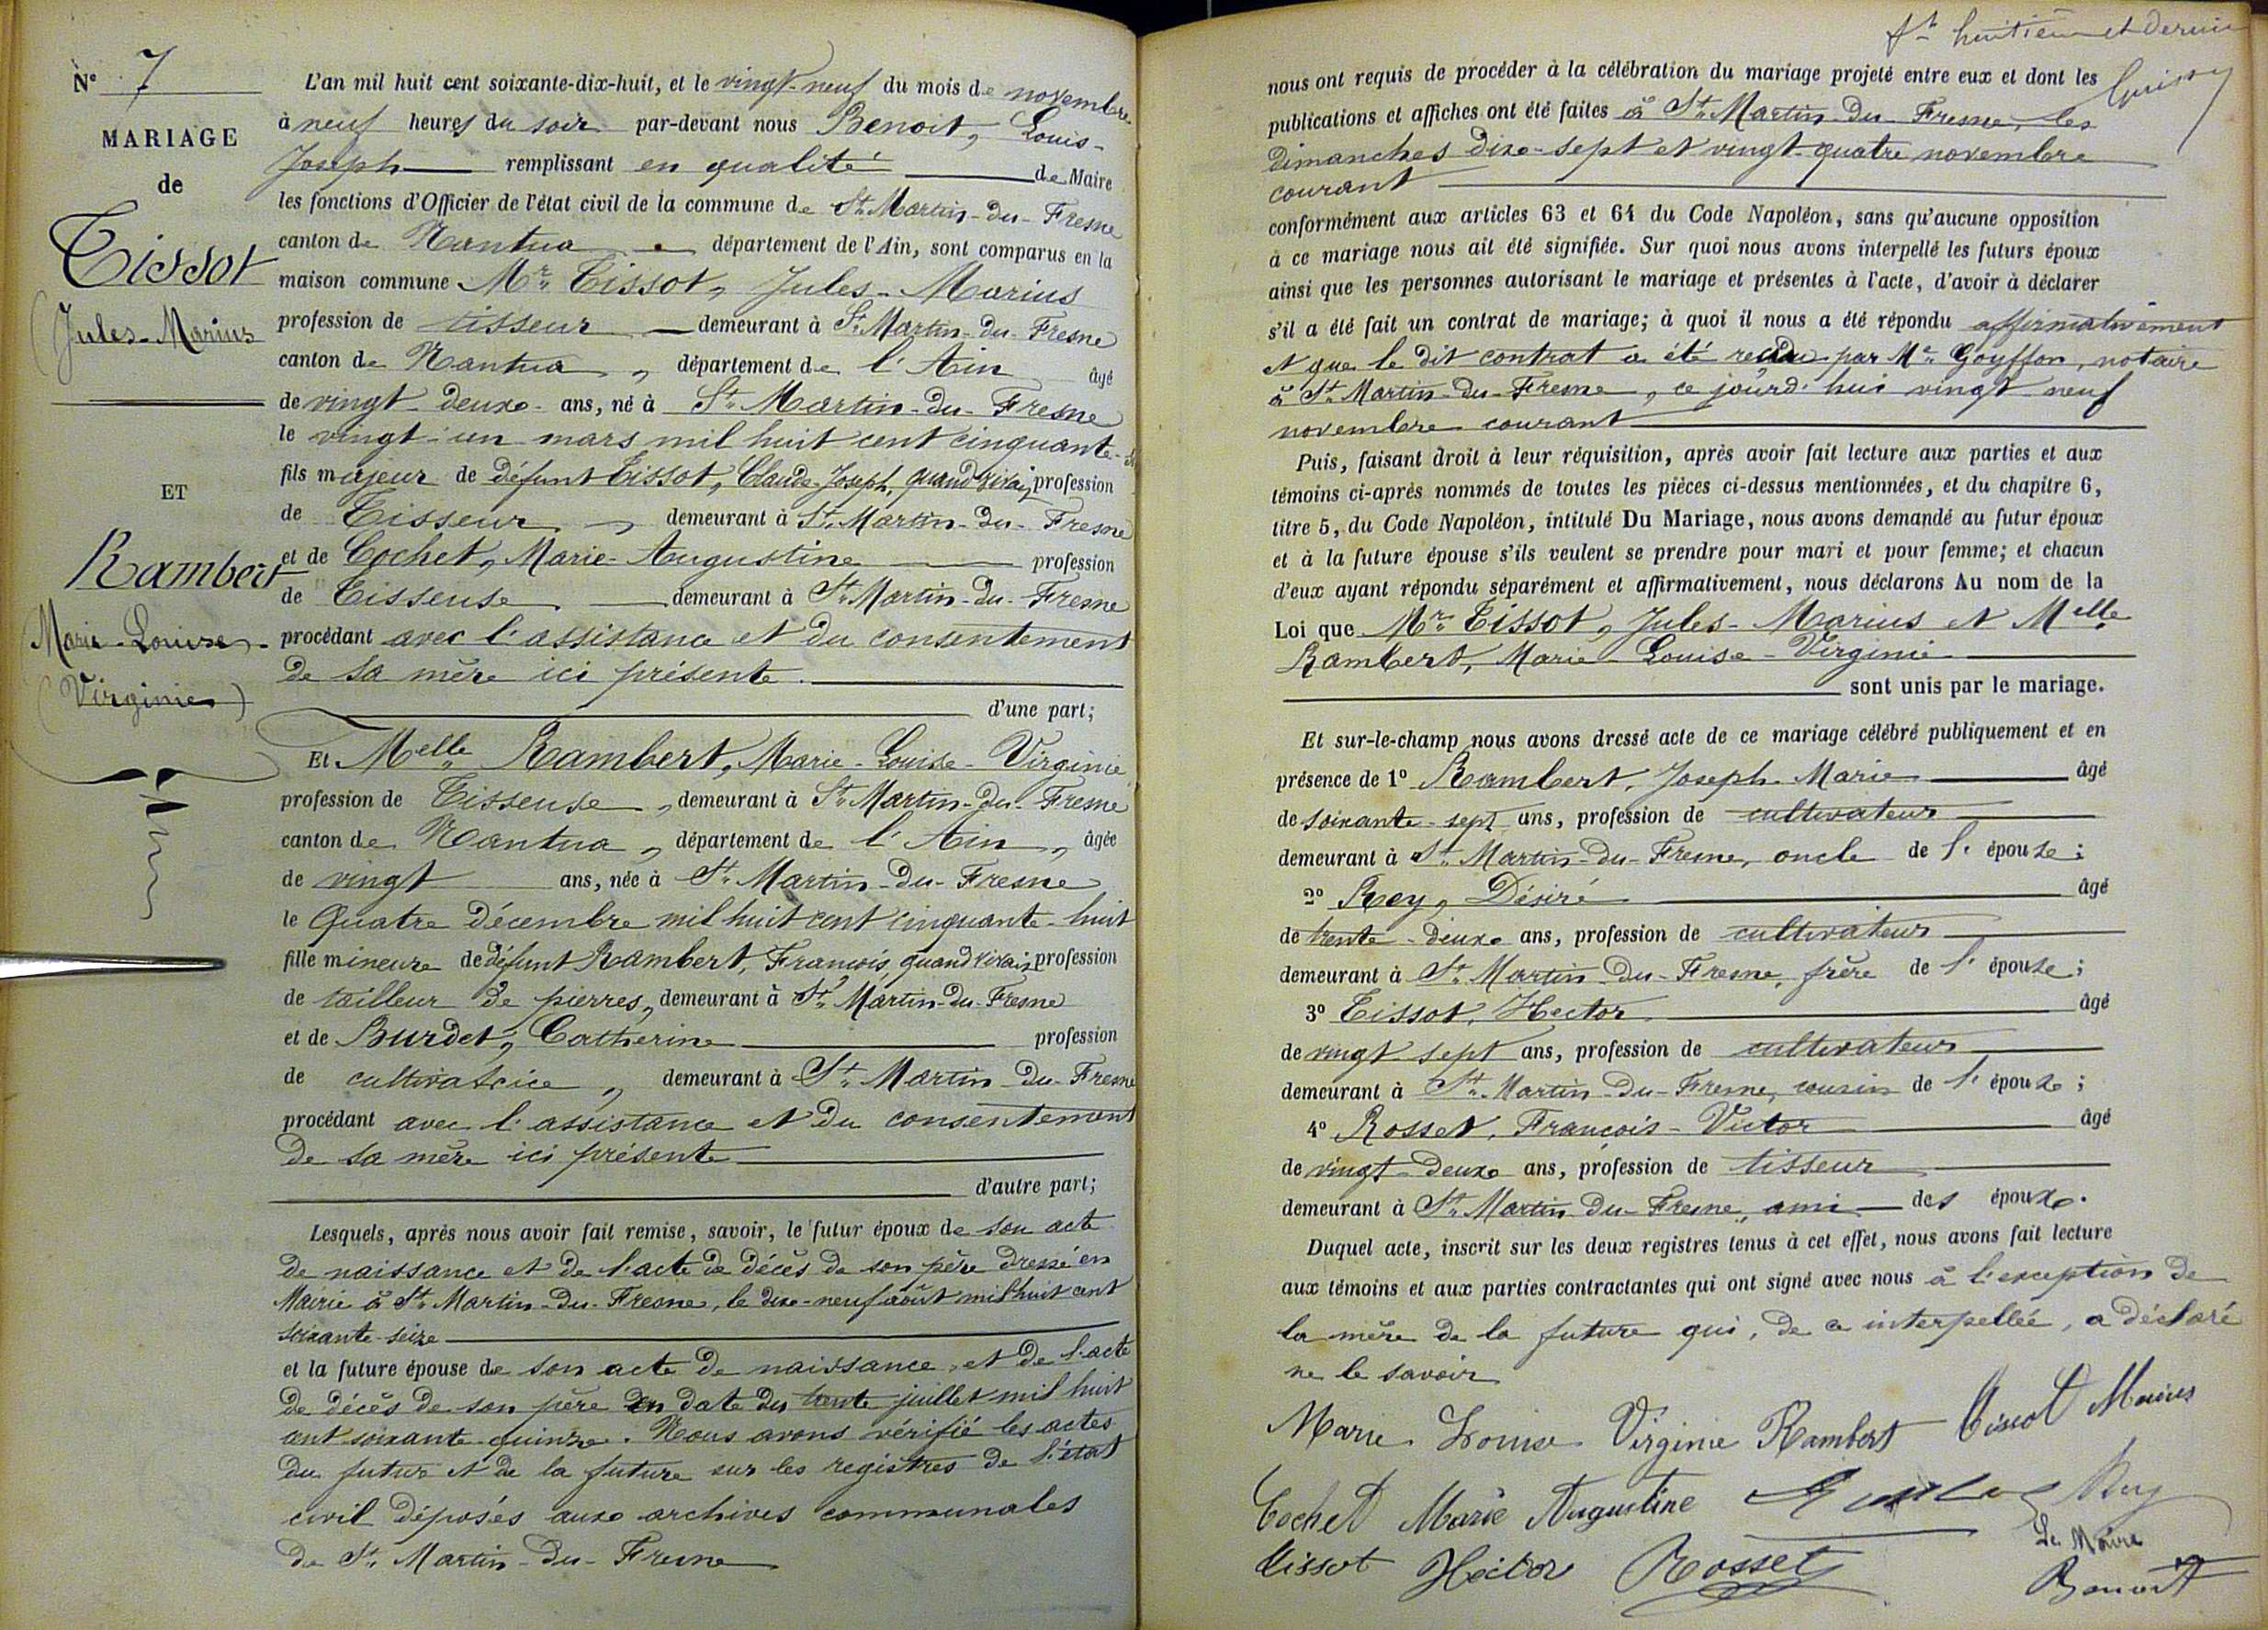 N° 7
MARIAGE
de
Tissot
(Jules-Marius
ET
Rambert
Marie-Louise-
(Virginie)
L'an mil huit cent soixante-dix-huit, et le vingt-neuf du mois de novembre
à neuf heures du soir par-devant nous Benoit, Louis-
Joseph remplissant en qualité de Maire
les fonctions d'Officier de l'état civil de la commune de St Martin-du-Fresne
canton de Nantua département de l'Ain, sont comparus en la
maison commune Mr Tissot, Jules-Marius
profession de tisseur demeurant à St Martin-du-Fresne
canton de Nantua, département de l'Ain âgé
de vingt-deux ans, né à St Martin-du-Fresne
le vingt-un mars mil huit cent cinquante-
fils majeur de défunt Tissot, Claude-Joseph, quand vivait profession
de Tisseur, demeurant à St Martin-du-Fresne
et de Cochet, Marie-Augustine profession
de Tisseuse demeurant à St Martin-du-Fresne
procédant avec l'assistance et du consentement
de sa mère ici présente.
d'une part;
Et Melle Rambert, Marie-Louise-Virginie
profession de Tisseuse, demeurant à St Martin-du-Fresne
canton de Nantua, département de l'Ain, âgée
de vingt ans, née à St Martin-du-Fresne
le Quatre décembre mil huit cent cinquante-huit
fille mineure de défunt Rambert, François, quand vivait profession
de tailleur de pierres, demeurant à St Martin-du-Fresne
et de Burdet, Catherine profession
de cultivatrice, demeurant à St Martin-du-Fresne
procédant avec l'assistance et du consentement
de sa mère ici présente
d'autre part;
Lesquels, après nous avoir fait remise, savoir, le futur époux de son acte
de naissance et de l'acte de décès de son père dressé en
Mairie à St Martin-du-Fresne, le dix-neuf août mil huit cent
soixante-seize
et la future épouse de son acte de naissance et de l'acte
de décès de son père en date du trente juillet mil huit
cent soixante quinze. Nous avons vérifié les actes
du futur et de la future sur les registres de l'état
civil déposés aux archives communales
de St Martin-du-Fresne
St huitième et dernier
nous ont requis de procéder à la célébration du mariage projeté entre eux et dont les
publications et affiches ont été faites à St Martin-du-Fresne, les
dimanches dix-sept et vingt-quatre novembre
courant
conformément aux articles 63 et 64 du Code Napoléon, sans qu'aucune opposition
à ce mariage nous ait été signifiée. Sur quoi nous avons interpellé les futurs époux
ainsi que les personnes autorisant le mariage et présentes à l'acte, d'avoir à déclarer
s'il a été fait un contrat de mariage; à quoi il nous a été répondu affirmativement
et que le dit contrat a été par Me Goyffon, notaire
à St Martin-du-Fresne, ce jourd'hui vingt neuf
novembre courant
Puis, faisant droit à leur réquisition, après avoir fait lecture aux parties et aux
témoins ci-après nommés de toutes les pièces ci-dessus mentionnées, et du chapitre 6,
titre 5, du Code Napoléon, intitulé Du Mariage, nous avons demandé au futur époux
et à la future épouse s'ils veulent se prendre pour mari et pour femme; et chacun
d'eux ayant répondu séparément et affirmativement, nous déclarons Au nom de la
Loi que Mr Tissot, Jules-Marius et Melle
Rambert, Marie-Louise-Virginie
sont unis par le mariage.
Et sur-le-champ nous avons dressé acte de ce mariage célébré publiquement et en
présence de 1° Rambert, Joseph-Marie âgé
de soixante-sept ans, profession de cultivateur
demeurant à St Martin-du-Fresne, oncle de l'épouse;
2° Rey, Désiré âgé
de trente-deux ans, profession de cultivateur
demeurant à St Martin-du-Fresne, frère de l'épouse;
3° Tissot, Hector âgé
de vingt sept ans, profession de cultivateur
demeurant à St Martin-du-Fresne, cousin de l'épouse;
4° Rosset, François-Victor âgé
de vingt-deux ans, profession de tisseur
demeurant à St Martin-du-Fresne, ami des époux.
Duquel acte, inscrit sur les deux registres tenus à cet effet, nous avons fait lecture
aux témoins et aux parties contractantes qui ont signé avec nous à l'exception de
la mère de la future qui, de ce interpellée, a déclaré
ne le savoir
Marie Louise Virginie Rambert Tissot Marius
Cochet Marie Augustine Rey
Tissot Hector Rosset Le Maire
Benoit